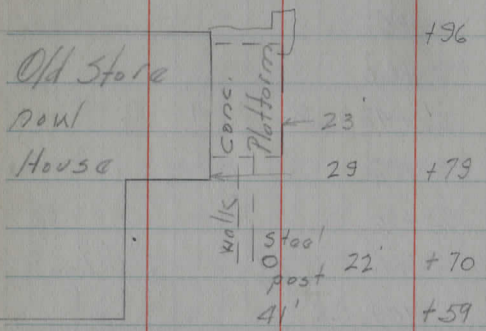 +96
Old Store
now
House
Conc.
Platform
23'
29 +79
walls
steel
post
22' +70
41' +59